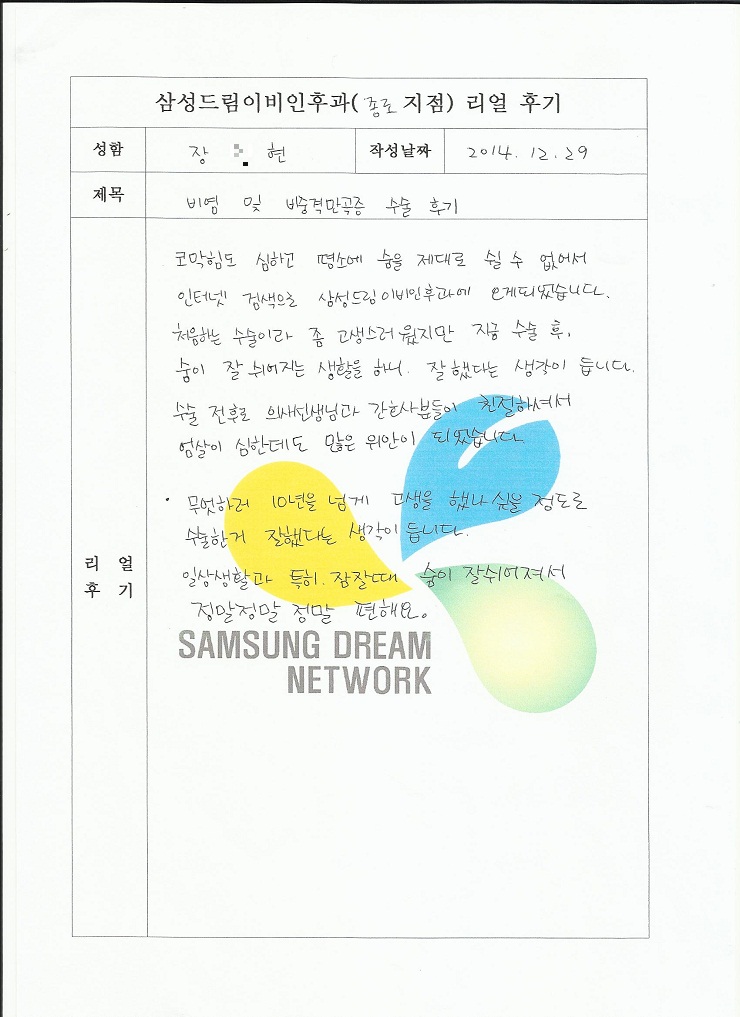 삼성드림이비인후과(종로 지점) 리얼 후기
성함 장 현 작성날짜 2014. 12. 29
제목 비염 및 비중격만곡증 수술 후기
코막힘도 심하고 평소에 숨을 제대로 쉴 수 없어서
인터넷 검색으로 삼성드림이비인후과에 오게되었습니다.
처음하는 수술이라 좀 고생스러웠지만 지금 수술 후,
숨이 잘 쉬어지는 생활을 하니. 잘했다는 생각이 듭니다.
수술 전후로 의사선생님과 간호사분들이 친절하셔서
엄살이 심한데도 많은 위안이 되었습니다
· 무엇하러 10년을 넘게 고생을 했나 싶을 정도로
수술한거 잘했다는 생각이 듭니다.
일상생활과 특히. 잠잘때 숨이 잘쉬어져서
정말정말 정말 편해요.
리얼
후기
SAMSUNG DREAM
NETWORK